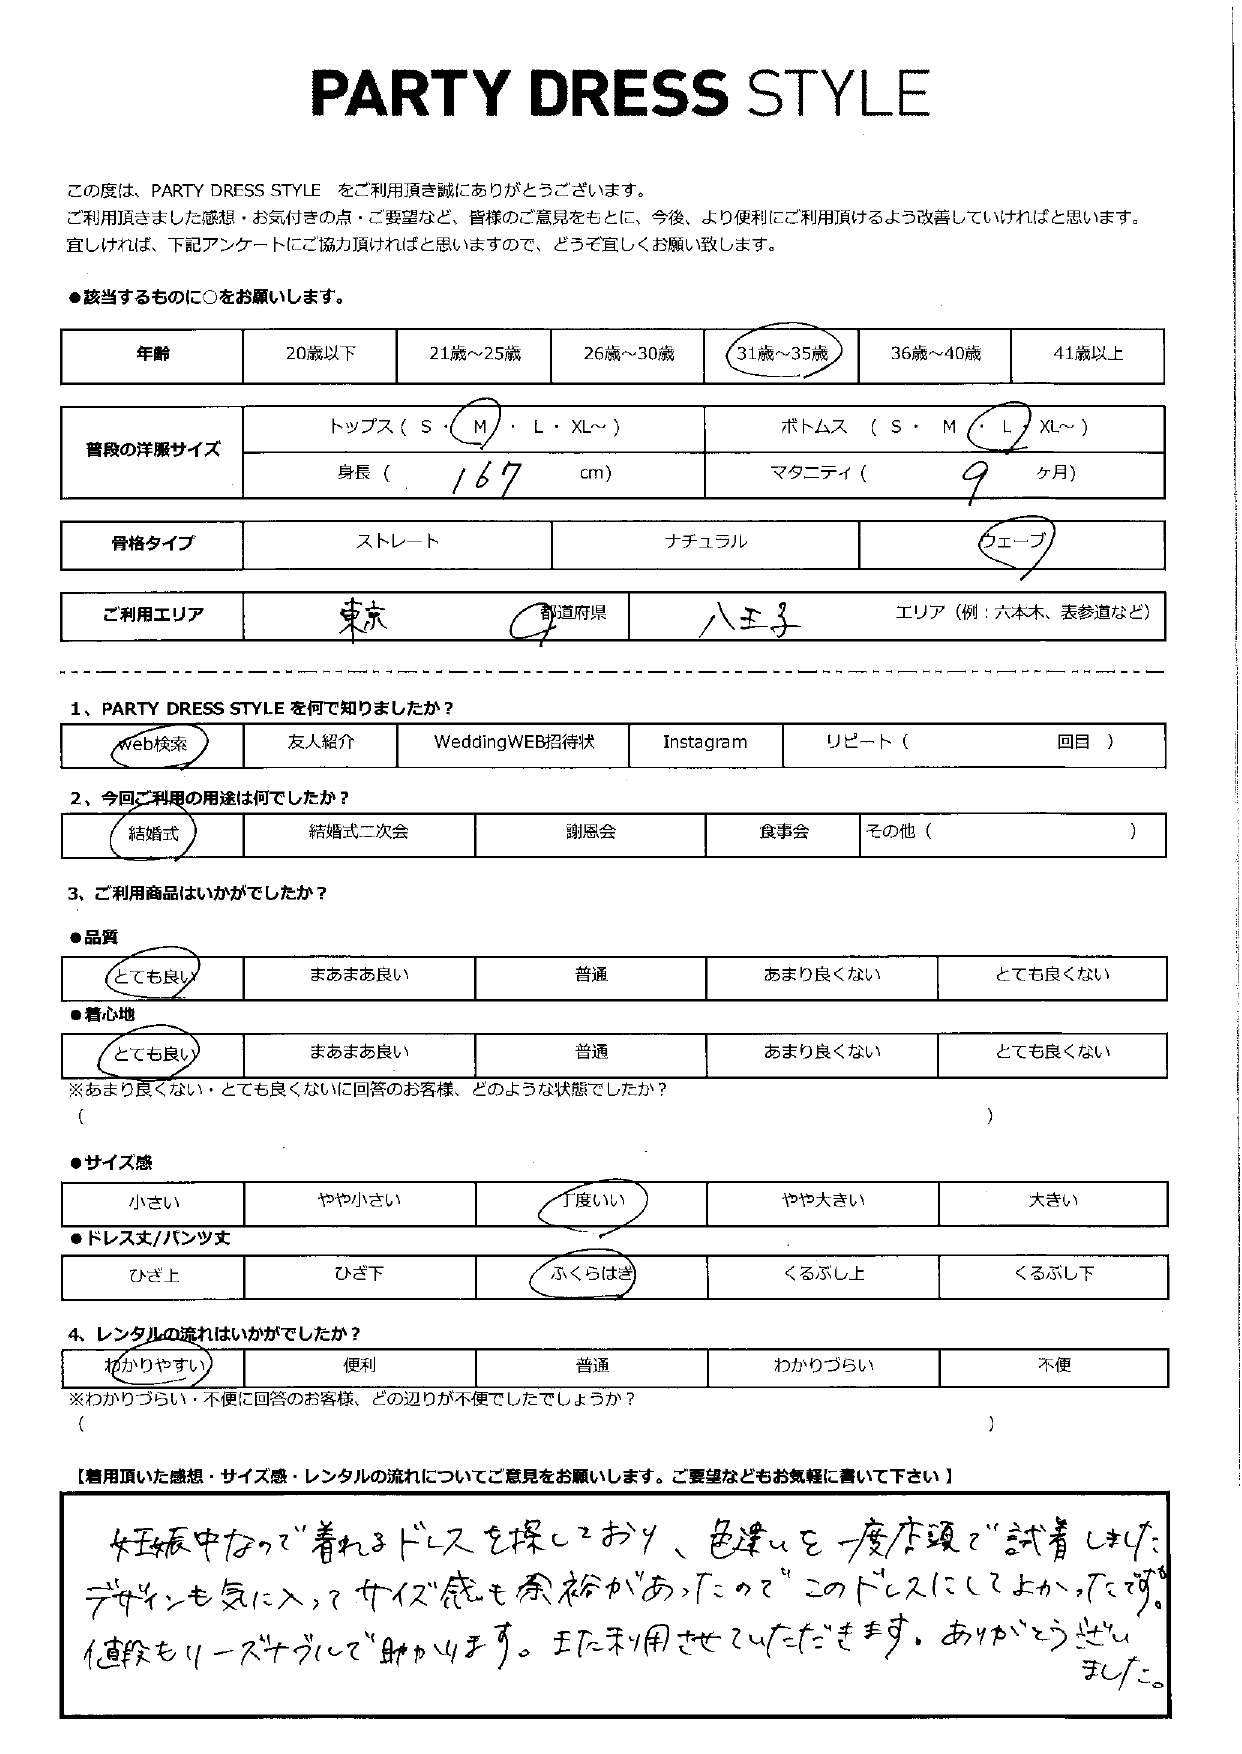 PARTY DRESS STYLE
この度は、PARTY DRESS STYLE をご利用頂き誠にありがとうございます。
ご利用頂きました感想・お気付きの点・ご要望など、皆様のご意見をもとに、今後、より便利にご利用頂けるよう改善していければと思います。
宜しければ、下記アンケートにご協力頂ければと思いますので、どうぞ宜しくお願い致します。
●該当するものに○をお願いします。
年齢 20歳以下 21歳～25歳 26歳～30歳 31歳～35歳 36歳～40歳 41歳以上
普段の洋服サイズ トップス ( S ・ M ・ L ・ XL～ ) ボトムス ( S ・ M ・ L ・ XL～ )
身長 ( 167 cm) マタニティ ( 9 ヶ月)
骨格タイプ ストレート ナチュラル ウェーブ
ご利用エリア 東京 都道府県 八王子 エリア（例：六本木、表参道など）
1、PARTY DRESS STYLE を何で知りましたか？
web検索 友人紹介 WeddingWEB招待状 Instagram リピート ( 回目 )
2、今回ご利用の用途は何でしたか？
結婚式 結婚式二次会 謝恩会 食事会 その他 ( )
3、ご利用商品はいかがでしたか？
●品質
とても良い まあまあ良い 普通 あまり良くない とても良くない
●着心地
とても良い まあまあ良い 普通 あまり良くない とても良くない
※あまり良くない・とても良くないに回答のお客様、どのような状態でしたか？
( )
●サイズ感
小さい やや小さい 丁度いい やや大きい 大きい
●ドレス丈/パンツ丈
ひざ上 ひざ下 ふくらはぎ くるぶし上 くるぶし下
4、レンタルの流れはいかがでしたか？
わかりやすい 便利 普通 わかりづらい 不便
※わかりづらい・不便に回答のお客様、どの辺りが不便でしたでしょうか？
( )
【着用頂いた感想・サイズ感・レンタルの流れについてご意見をお願いします。ご要望などもお気軽に書いて下さい 】
妊娠中なので着れるドレスを探しており、色違いを一度店頭で試着しました
デザインも気に入ってサイズ感も余裕があったのでこのドレスにしてよかったです。
値段もリーズナブルで助かります。また利用させていただきます。ありがとうござい
ました。